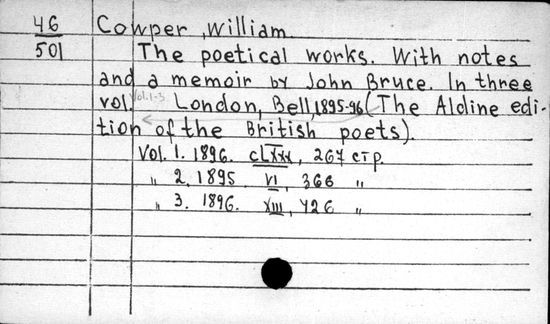 46 Cowper, William.
501 The poetical works. With notes
and a memoir by John Bruce. In three
vol. Vol. 1-3. London, Bell, 1895-96 (The Aldine edi-
tion of the British poets).
Vol. 1. 1896. CLXXX, 267 стр.
" 2. 1895 VI, 366 "
" 3. 1896. XIII, 426 "